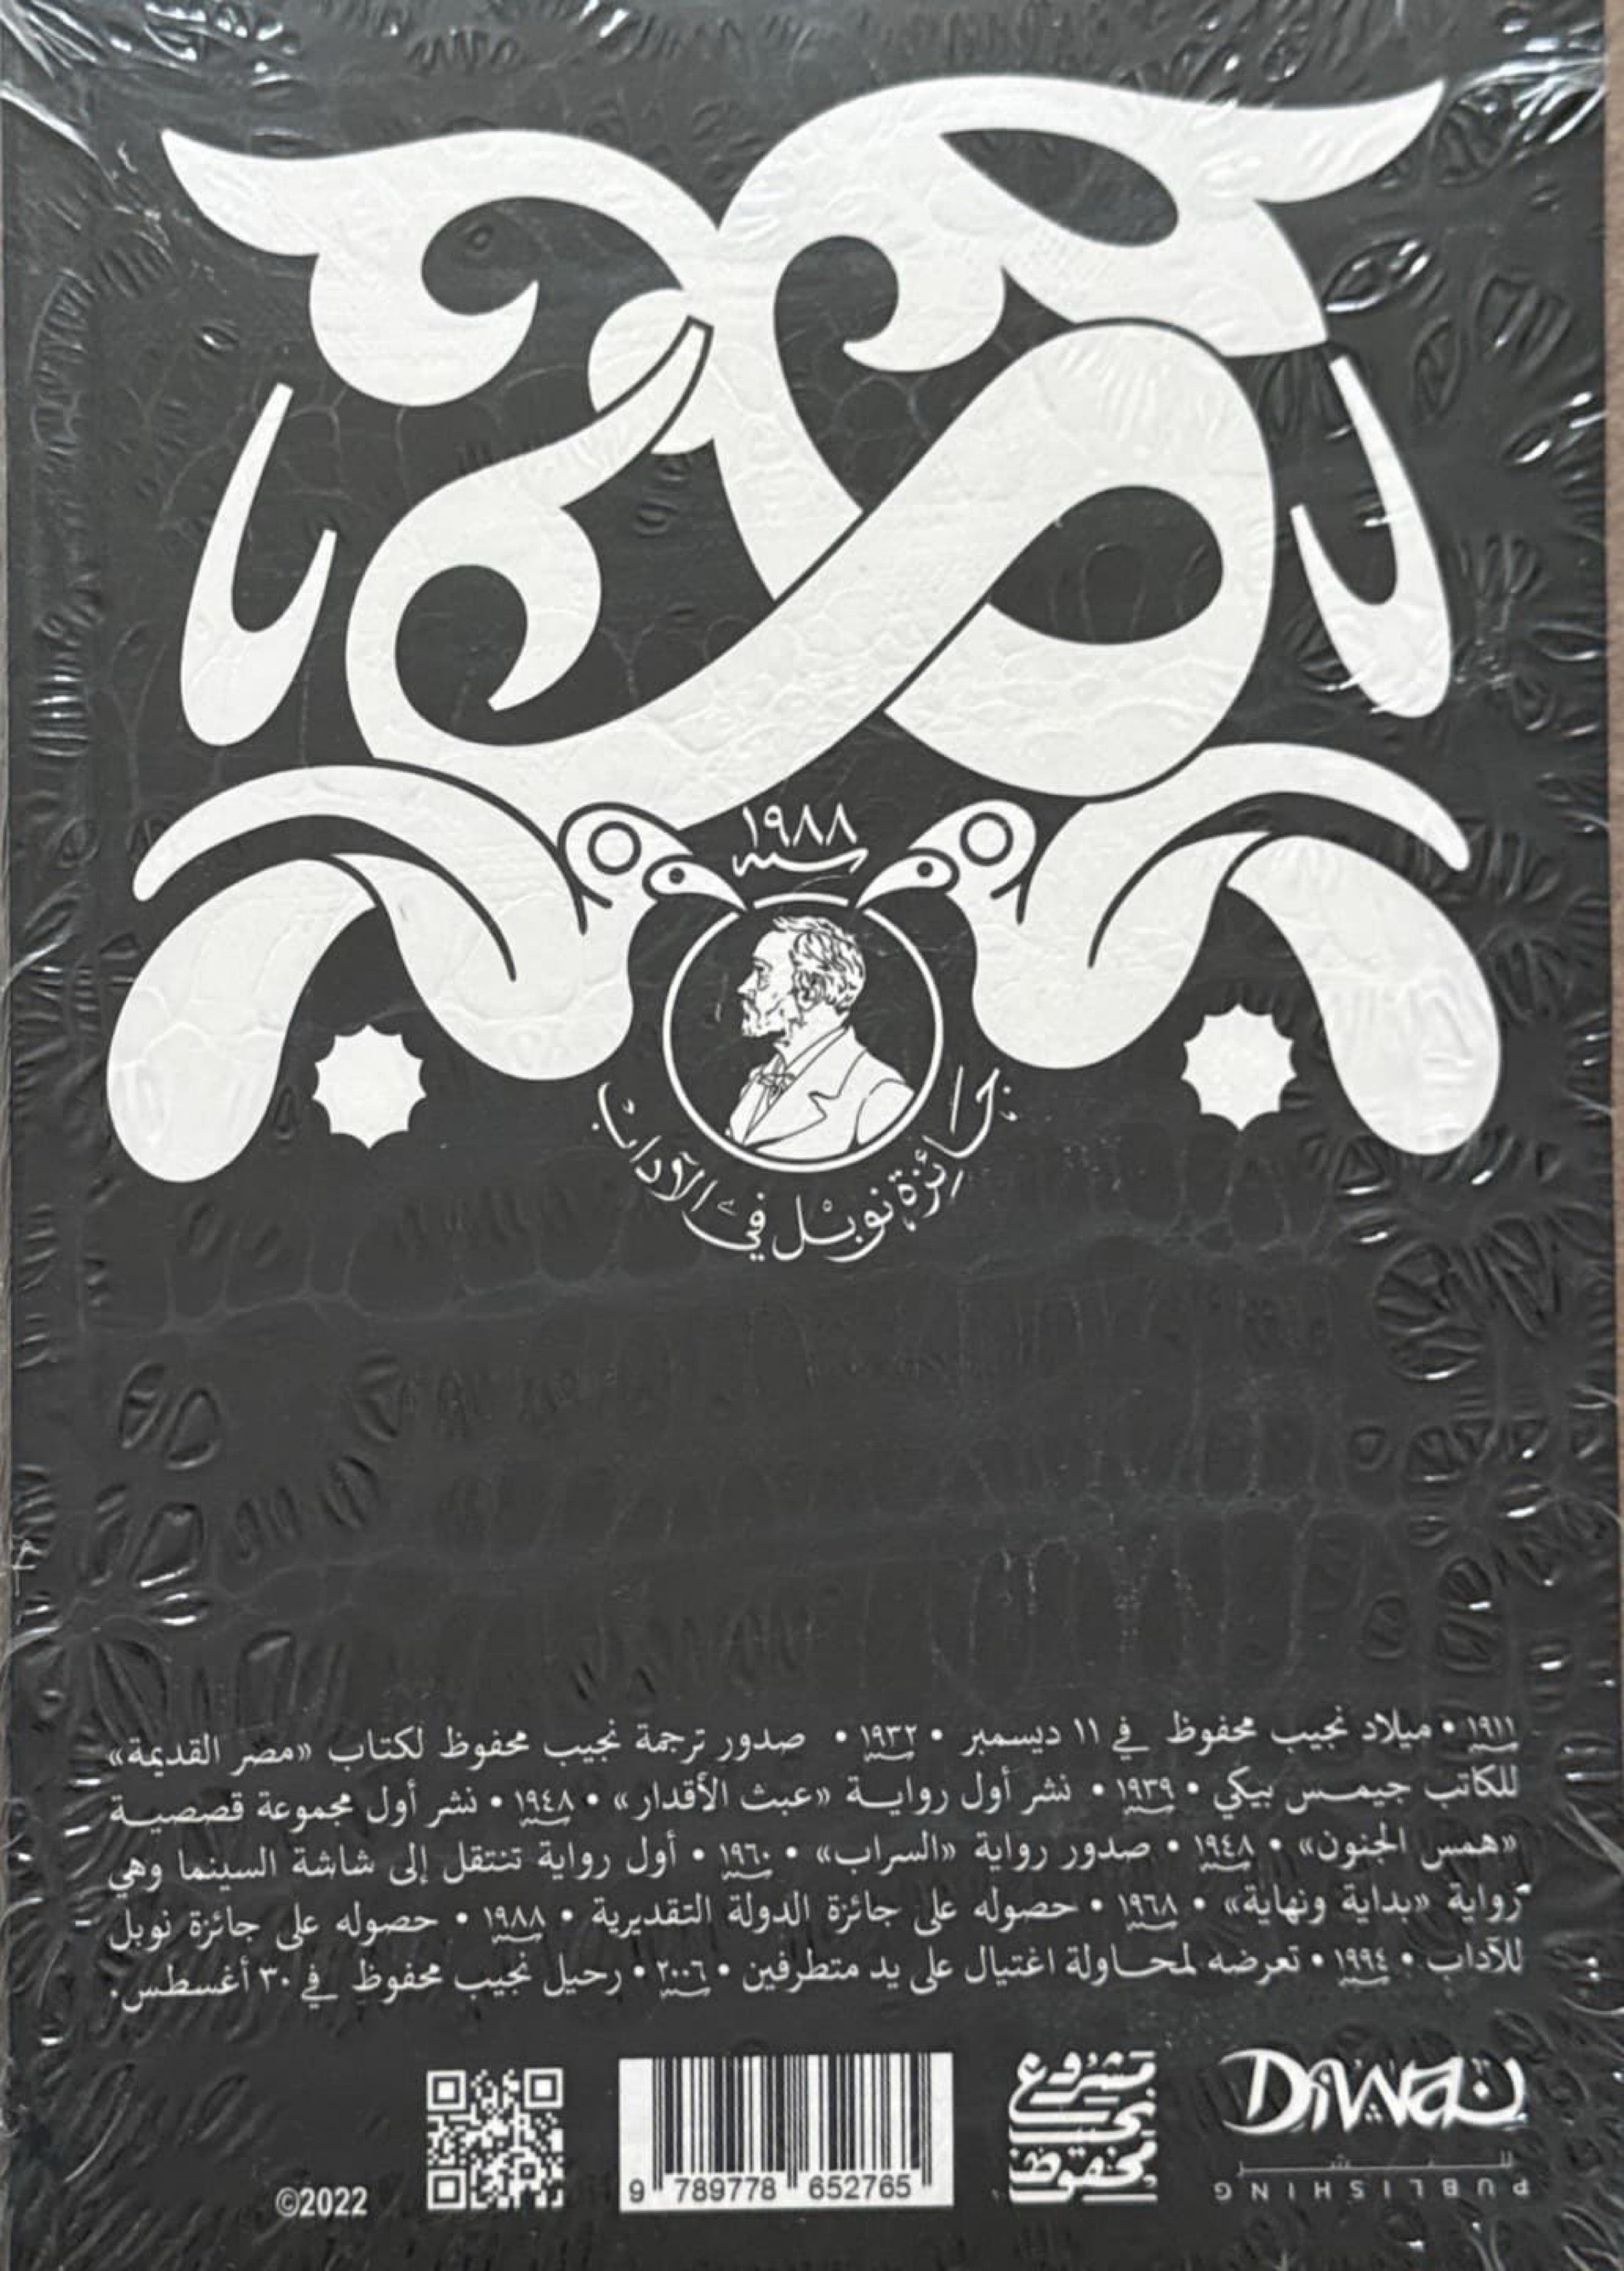 ١٩٨٨
سنة
جائزة نوبل في الآداب
١٩١١ • ميلاد نجيب محفوظ في ١١ ديسمبر • ١٩٣٢ • صدور ترجمة نجيب محفوظ لكتاب «مصر القديمة»
للكاتب جيمس بيكي • ١٩٣٩ • نشر أول رواية «عبث الأقدار» • ١٩٤٨ • نشر أول مجموعة قصصية
«همس الجنون» • ١٩٤٨ • صدور رواية «السراب» • ١٩٦٠ • أول رواية تنتقل إلى شاشة السينما وهي
رواية «بداية ونهاية» • ١٩٦٨ • حصوله على جائزة الدولة التقديرية • ١٩٨٨ • حصوله على جائزة نوبل
للآداب • ١٩٩٤ • تعرضه لمحاولة اغتيال على يد متطرفين • ٢٠٠٦ • رحيل نجيب محفوظ في ٣٠ أغسطس.
DiWaN
للنشر
PUBLISHING
مشروع
نجيب
محفوظ
9 789778 652765
©2022